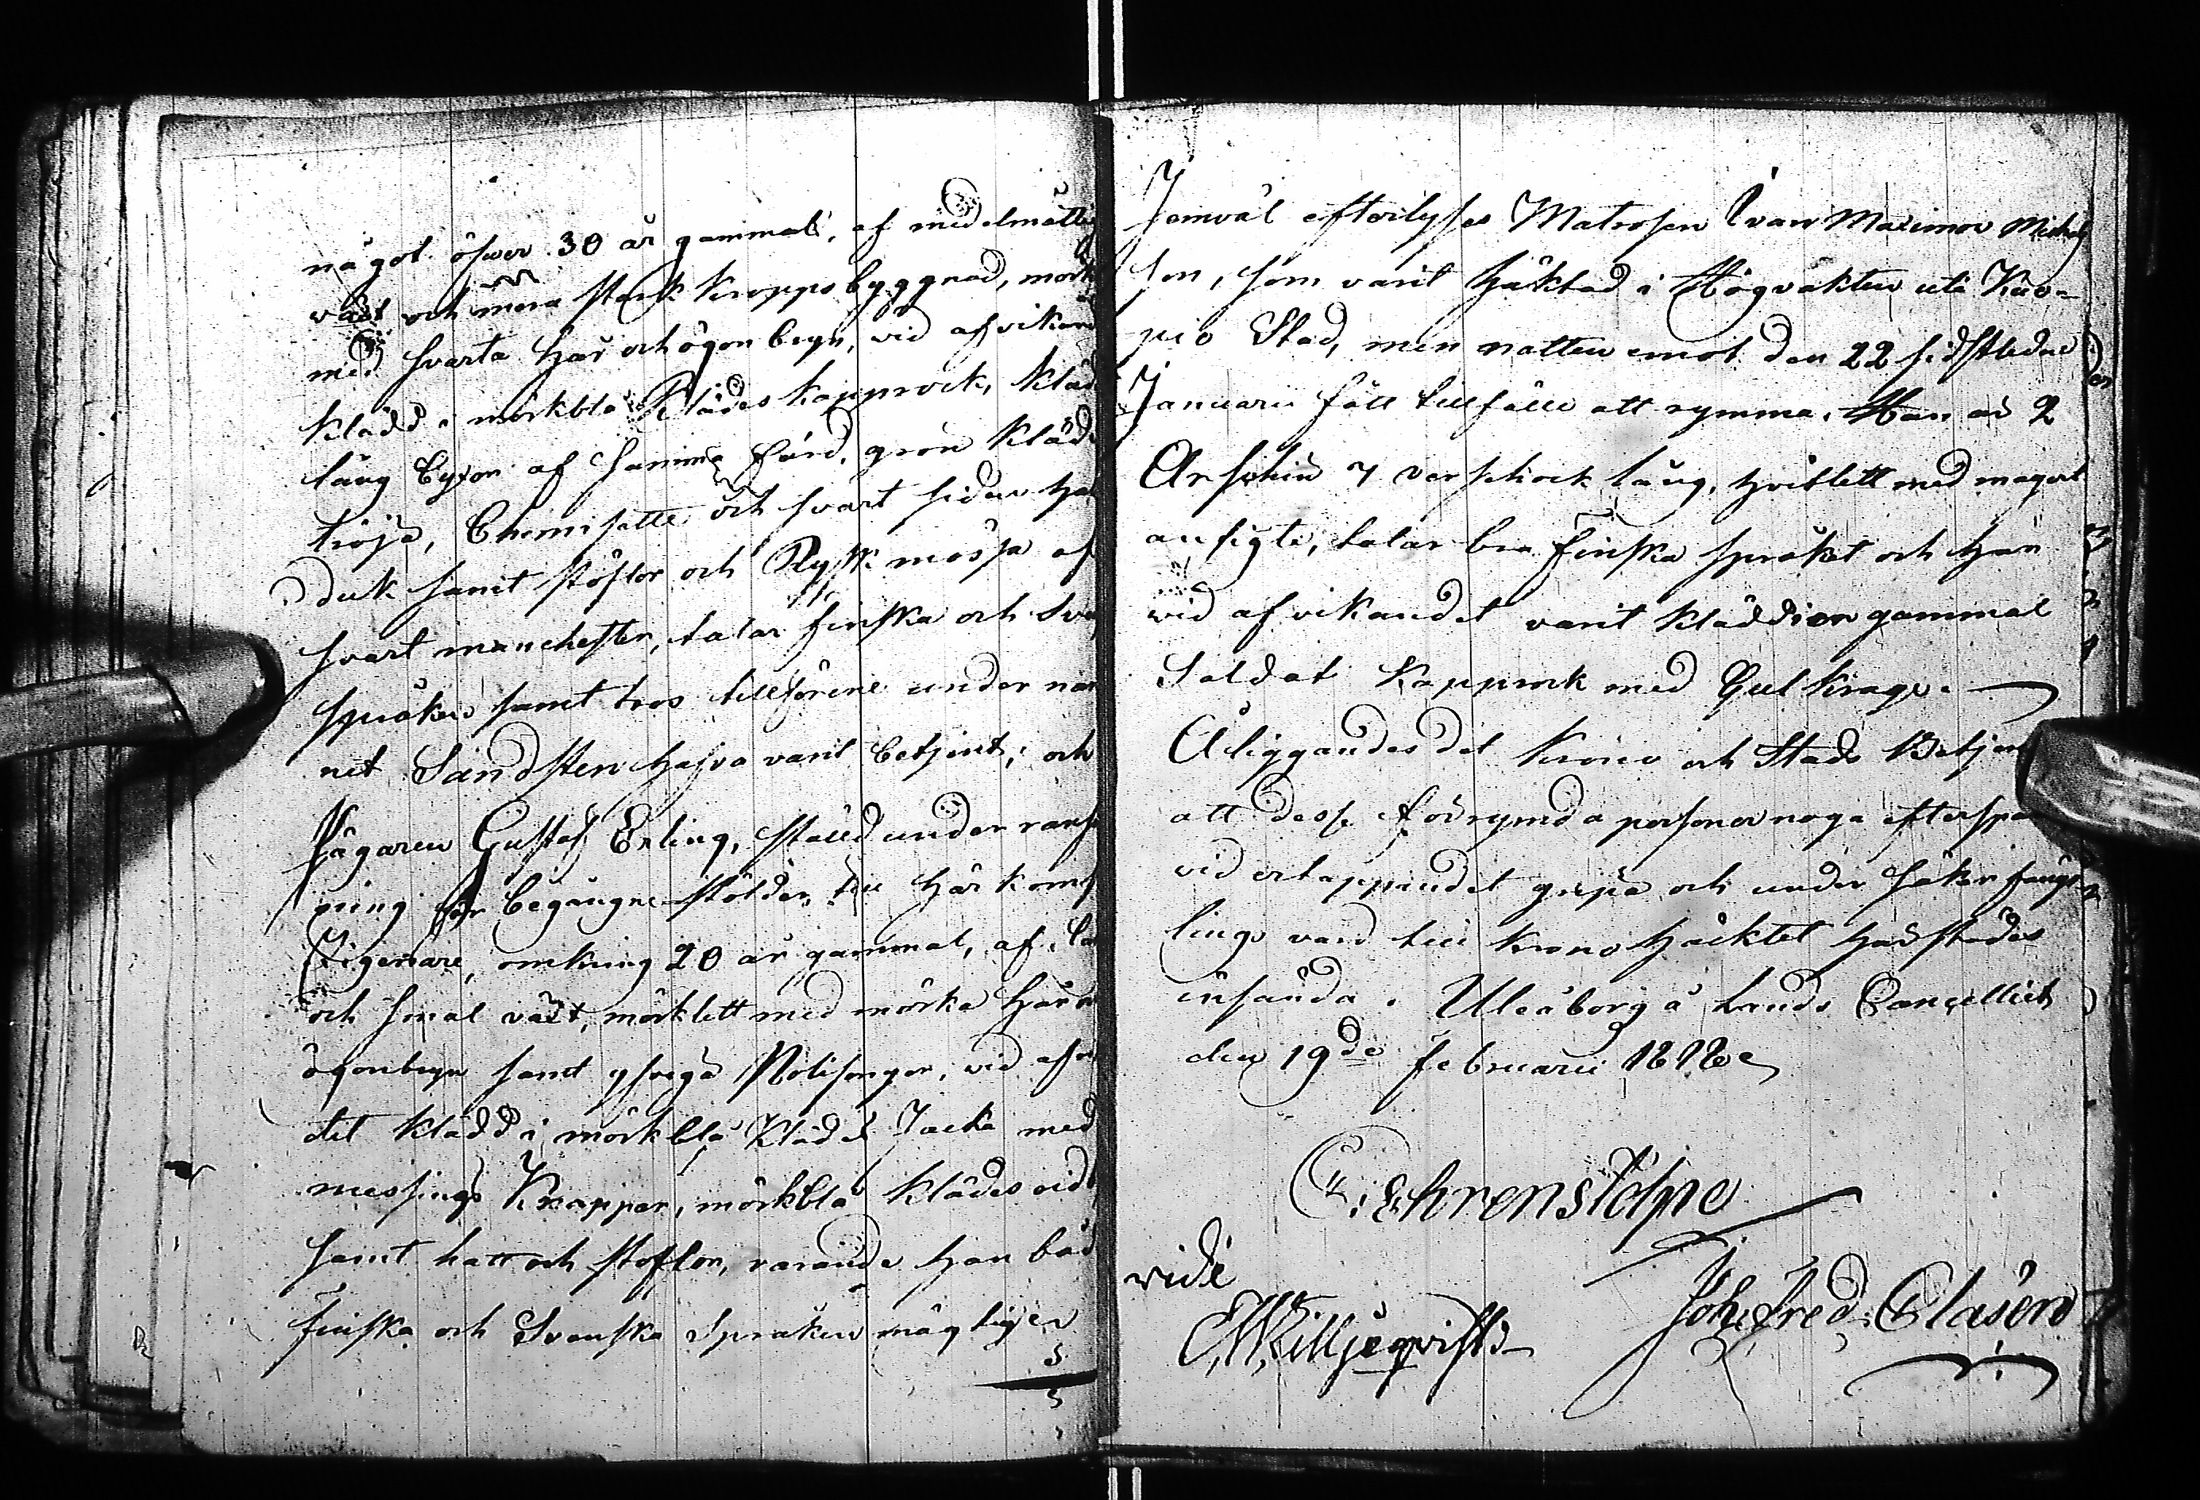 något öfwer 30 år gammal, af medelmåttig
växt och mera stark kroppsbyggnad, mörk
med svarta hår och ögonbryn, vid afvikand
klädd i mörkblå Klädes kapprock, kläd
lång byxor af samma färd, grön kläd
tröja, Chemisette och svart siden hal
duk samt stöflor och Rysk mössa af
svart manchester, talar finska och Sve
språken samt tros tillförene under nam
net Sandsten hafva varit betjent; och
Jägaren Gustaf Erling, ställd under ransa
ning för begångne stölder till här komst
Zigenare, omkring 20 år gammal, af lå
och smal växt, mörklett med mörka hår o
ögonbryn samt yfviga Polisonger, vid afvi
det klädd i mörkblå Klädes Jacka med
messings Knappar, mörkblå klädes vid
samt hatt och stöflor, varande han båd
finska och Svenska Språken mägtig er
Jemväl efterlyses Matrosen Ivan Maximov Michels
son, som varit häktad i Högvakten uti Kuo-
pio Stad, men natten emot den 22 sidstledne
Januarii fått tillfälle att rymma. Han är 2
Arschin 7 verschock lång, hvitlett med magert
ansigte, talar bra finska språket och han
vid afvikandet varit klädd i en gammal
Soldat Kapprock med Gul krage.
Åliggandes det Krono och Stads Betjen
att desse förrymda personer noga efterspa
vid ertappandet gripa och under säker fångs
lings vård till Krono häcktet härstädes
insända. Uleåborg å Lands Cancelliet
den 19de februarii 1818
C. Ehrenstolpe
vidi
Joh. Fred. Clasén
C. W. Liljeqvist